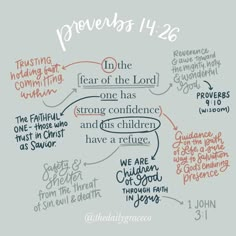 proverbs 14:26
TRUSTING
holding fast
COMMITTING
within
Reverence
& awe toward
the mighty, holy
& wonderful
God
In the
fear of the Lord
one has
(strong confidence)
and his children
have a refuge.
PROVERBS
9:10
(WISDOM)
THE FAITHFUL
ONE - those who
trust in CHRIST
as Savior
Guidance
in the path
of Life a sure
way to Salvation
& God's enduring
presence
Safety &
Shelter
from the threat
of sin, evil & death
WE ARE
CHILDREN
OF God
THROUGH FAITH
IN Jesus
1 JOHN
3:1
@thedailygracec